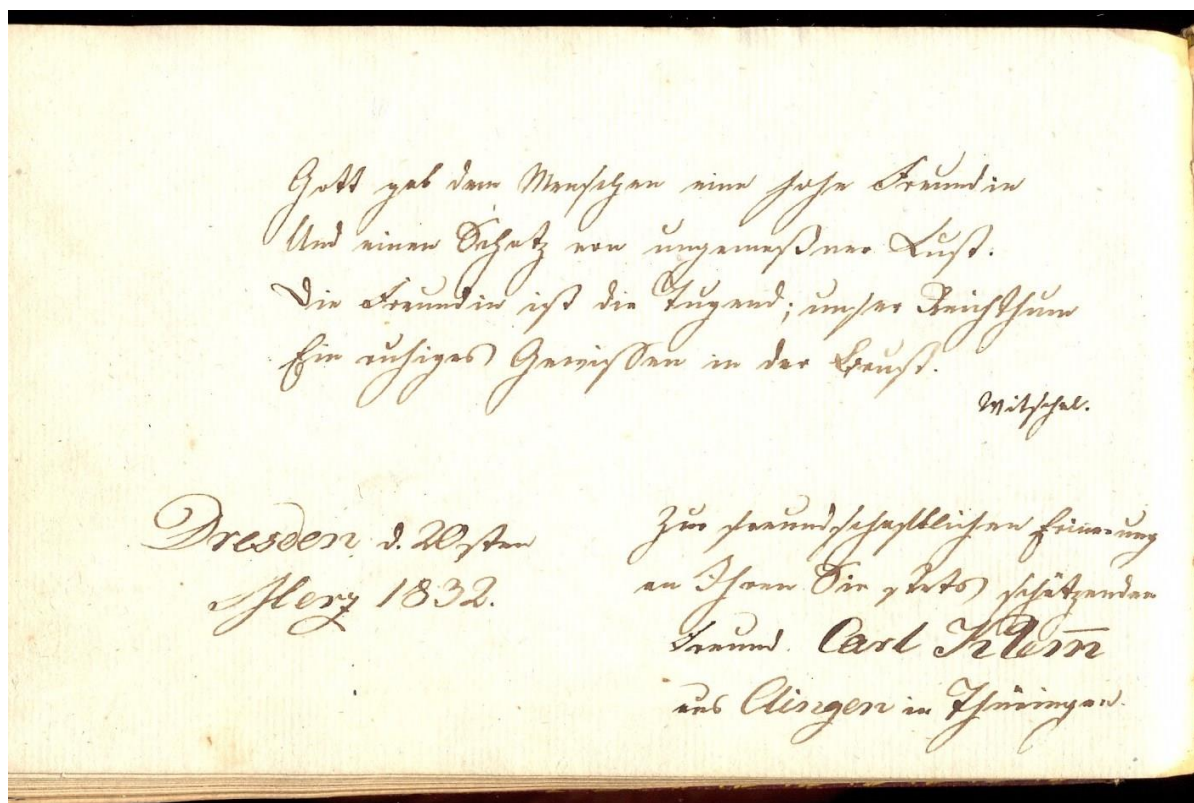 Gott gab dem Menschen eine hohe Freundin
Und einen Schatz von ungemeßner Lust.
Die Freundin ist die Tugend; unser Reichthum
Ein ruhiges Gewissen in der Brust.
Witschel.
Dresden d. 20sten
Merz 1832.
Zur freundschaftlichen Erinnrung
an Ihren Sie stets schätzenden
Freund. Carl Klem̅
aus Clingen in Thüringen.